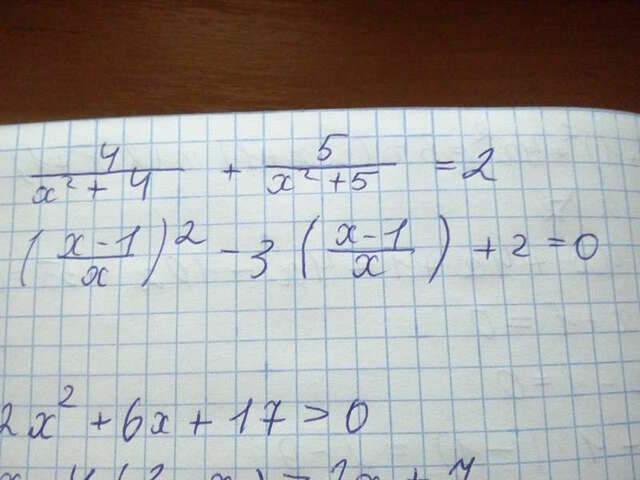 4/(x² + 4) + 5/(x² + 5) = 2
((x - 1)/x)² - 3((x - 1)/x) + 2 = 0
2x² + 6x + 17 > 0